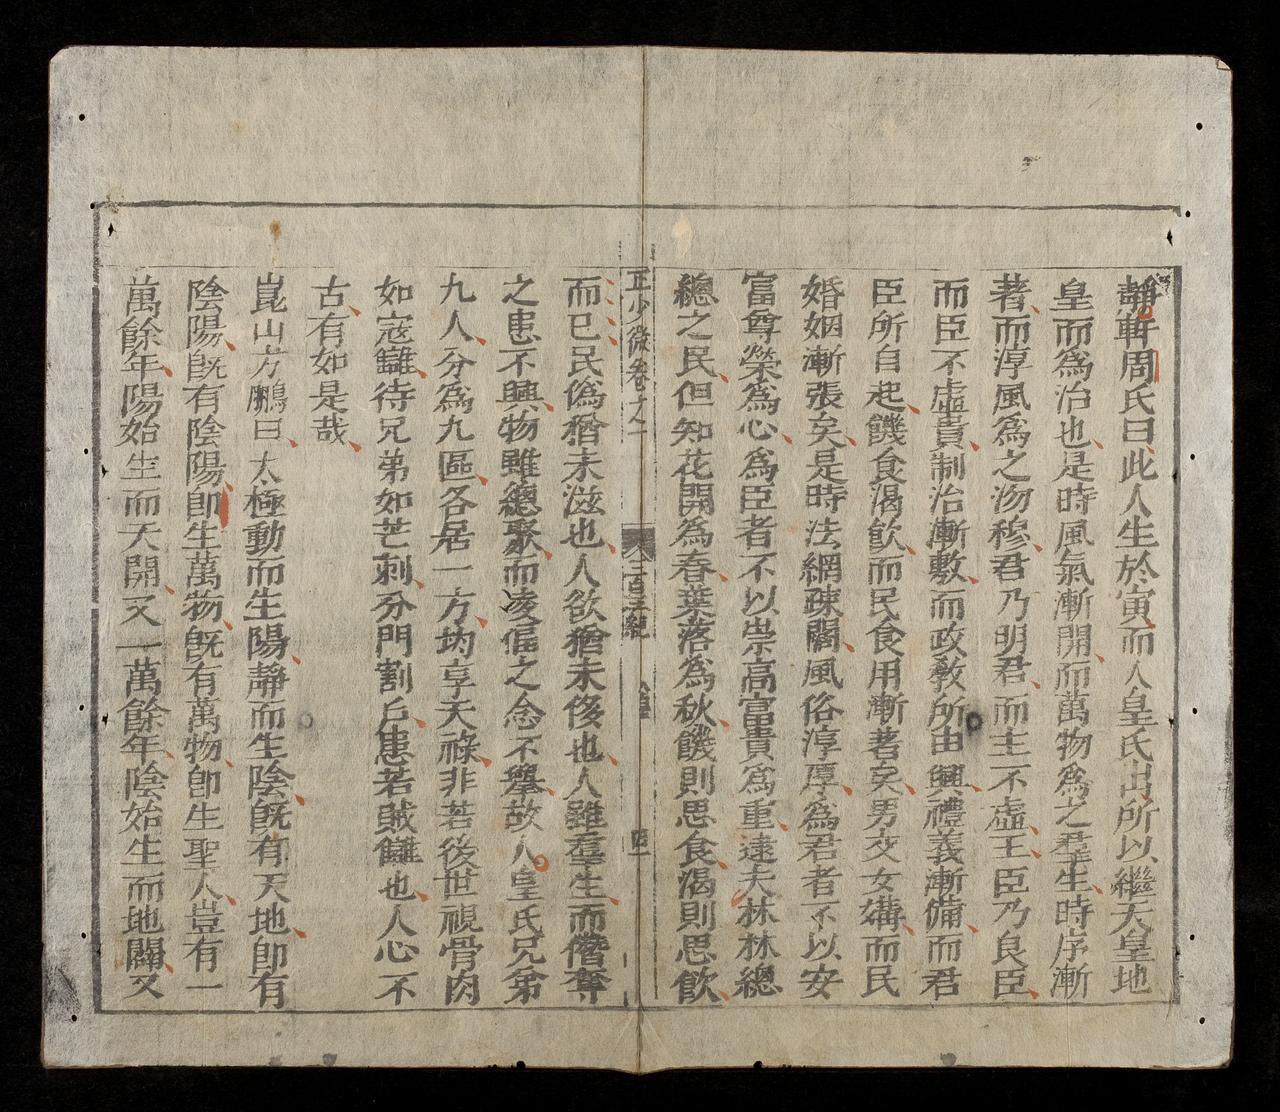 靜軒周氏曰此人生於寅而人皇氏出所以繼天皇地
皇而爲治也是時風氣漸開而萬物爲之羣生時序漸
著而淳風爲之沕穆君乃明君而主不虛王臣乃良臣
而臣不虛貴制治漸敷而政敎所由興禮義漸備而君
臣所自起饑食渴飮而民食用漸著矣男交女媾而民
婚姻漸張矣是時法網疎闊風俗淳厚爲君者不以安
富尊榮爲心爲臣者不以崇高富貴爲重逺夫林林總
總之民但知花開爲春葉落爲秋饑則思食渴則思飮
正少微卷之一 三皇紀 人皇 四
而已民僞猶未滋也人欲猶未侈也人雖羣生而僭奪
之患不興物雖總聚而凌傴之念不舉故人皇氏兄弟
九人分爲九區各居一方均享天祿非若後世視骨肉
如寇讎待兄弟如芒刺分門割戶患若賊讎也人心不
古有如是哉
崑山方鵬曰太極動而生陽靜而生陰旣有天地卽有
陰陽旣有陰陽卽生萬物旣有萬物卽生聖人豈有一
萬餘年陽始生而天開又一萬餘年陰始生而地闢又